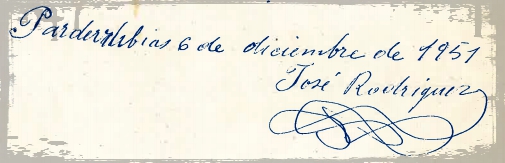 Parderrubias 6 de diciembre de 1951
José Rodriguez